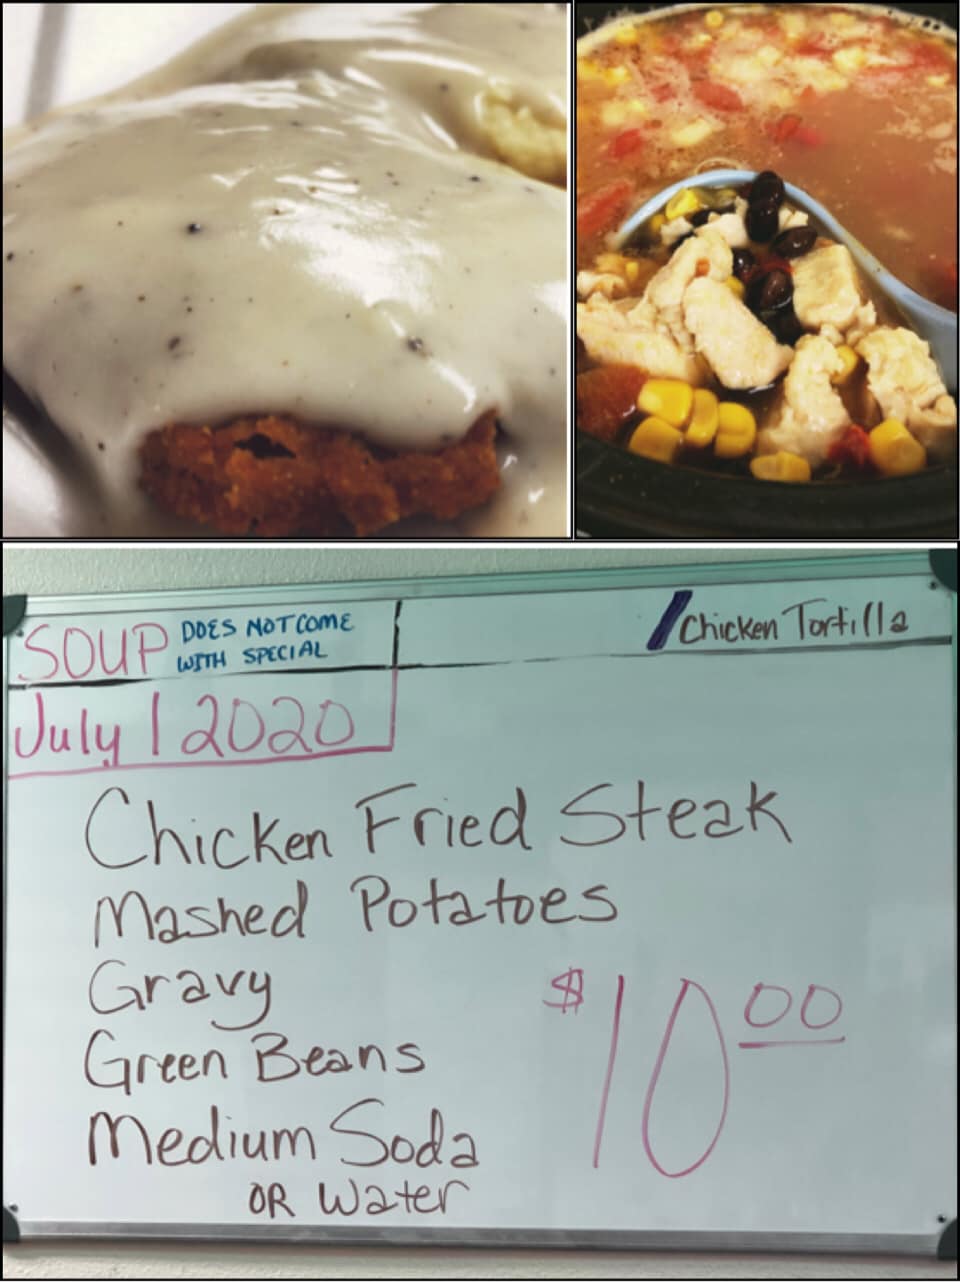 SOUP DOES NOT COME
WITH SPECIAL
/Chicken Tortilla
July 1 2020
Chicken Fried Steak
Mashed Potatoes
Gravy
Green Beans
Medium Soda
OR Water
$10.00